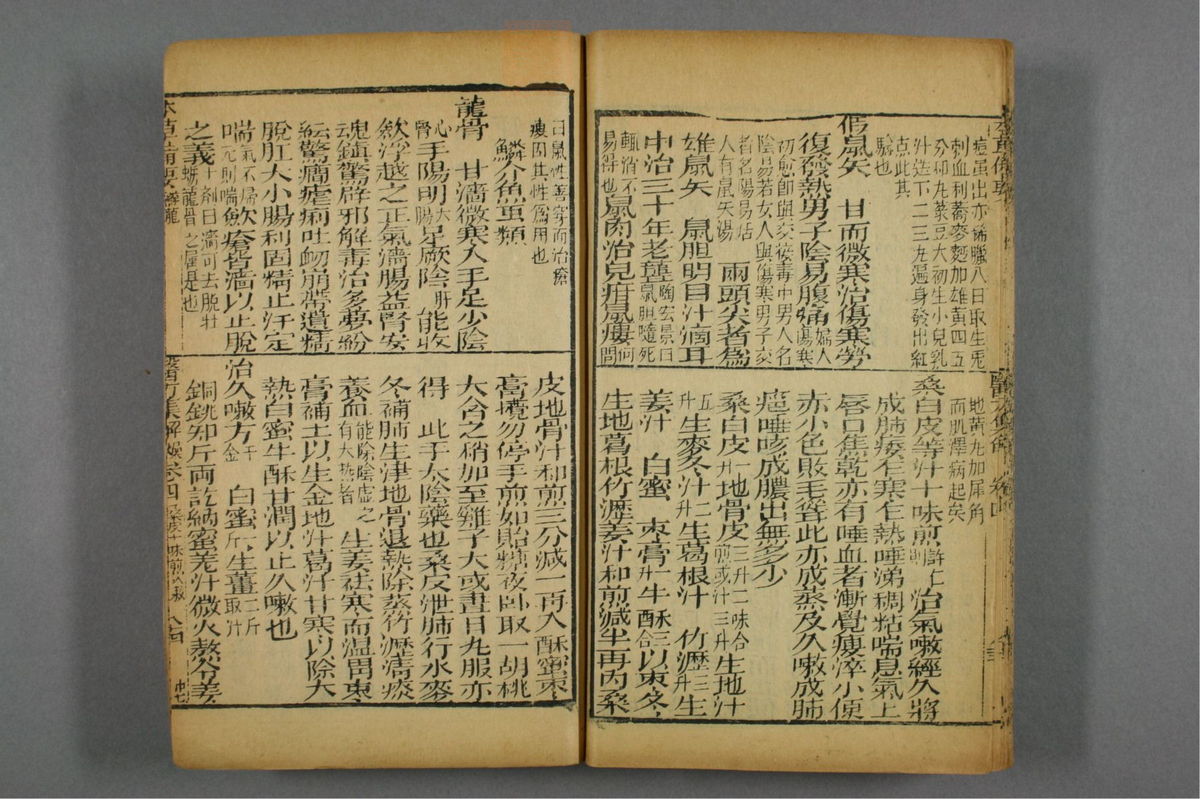 痘虽出亦稀臘八日取生兎
刺血和蕎麥麪加雄黃四五
分和丸菉豆大初生小兒乳
汁送下二三丸遍身發出紅
点此其
驗也
鼠矢　甘而微寒治傷寒勞
復發熱男子陰易腹痛婦人傷寒
初愈即與交接毒中男人名
陰易若女人與傷寒男子交
者名陽易活
人有鼠矢湯　兩頭尖者為
雄鼠矢　鼠胆明目汁滴耳
中治三十年老聾陶宏景曰鼠胆隨死
輒消不
易得也鼠肉治兒疳鼠瘻何間
地黃丸加犀角
而肌澤病起矣
桑白皮等汁十味煎許仁則治氣嗽經久將
成肺痿乍寒乍熱唾涕稠粘喘息氣上
唇口焦乾亦有唾血者漸覺瘦淬小便
赤小色敗毛聳此亦成蒸及久嗽成肺
疽唾咳成膿出無多少
桑白皮一升地骨皮三升二味合煎或汁三升生地汁
五升生麥冬汁二升生葛根汁　竹瀝三升生
姜汁　白蜜　枣膏一升牛酥三合以枣冬
生地葛根竹瀝姜汁和煎減半再内桑
曰鼠性善穿而治瘡
瘻因其性為用也
鱗介魚虫類
龍骨　甘濇微寒入手足少陰
心腎手陽明大腸足厥陰肝能收
斂浮越之正氣濇腸益腎安
魂鎮驚辟邪解毒治多夢紛
紜驚癇瘧痢吐衂崩帶遺精
脫肛大小腸利固精止汗定
喘氣不歸元則喘斂瘡皆濇以止脫
之義十劑曰濇可去脫牡蛎龍骨之屬是也
本草備要　鱗　龍
皮地骨汁和煎三分減一再入酥蜜枣
膏攪勿停手煎如飴糖夜卧取一胡桃
大含之稍加至雞子大或晝日丸服亦
得　此手太陰藥也桑皮泄肺行水麥
冬補肺生津地骨退熱除蒸竹瀝清痰
養血能除陰虛之有大熱者生姜祛寒而溫胃枣
膏補土以生金地汁葛汁甘寒以除大
熱白蜜牛酥甘潤以止久嗽也
治久嗽方千金　白蜜一斤生薑二斤取汁
銅銚知斤兩訖納蜜羌汁微火熬令姜
醫方集解　嗽　卷四